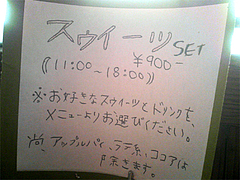 スウィーツSET
¥900-
((11:00~18:00))
※お好きなスウィーツとドリンクを、
メニューよりお選びください。
尚アップルパイ、ラテ系、ココアは
除きます。